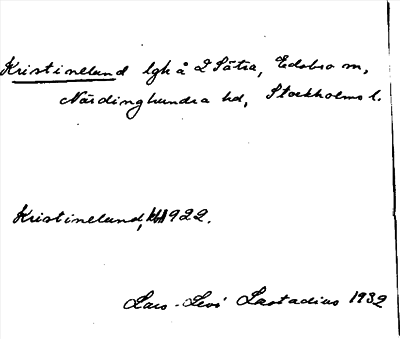 Kristinelund lgh å 2 Sätra, Edsbro sn,
Närdinghundra hd, Stockholms l.
Kristinelund, 1922.
Lars-Levi Laestadius 1932